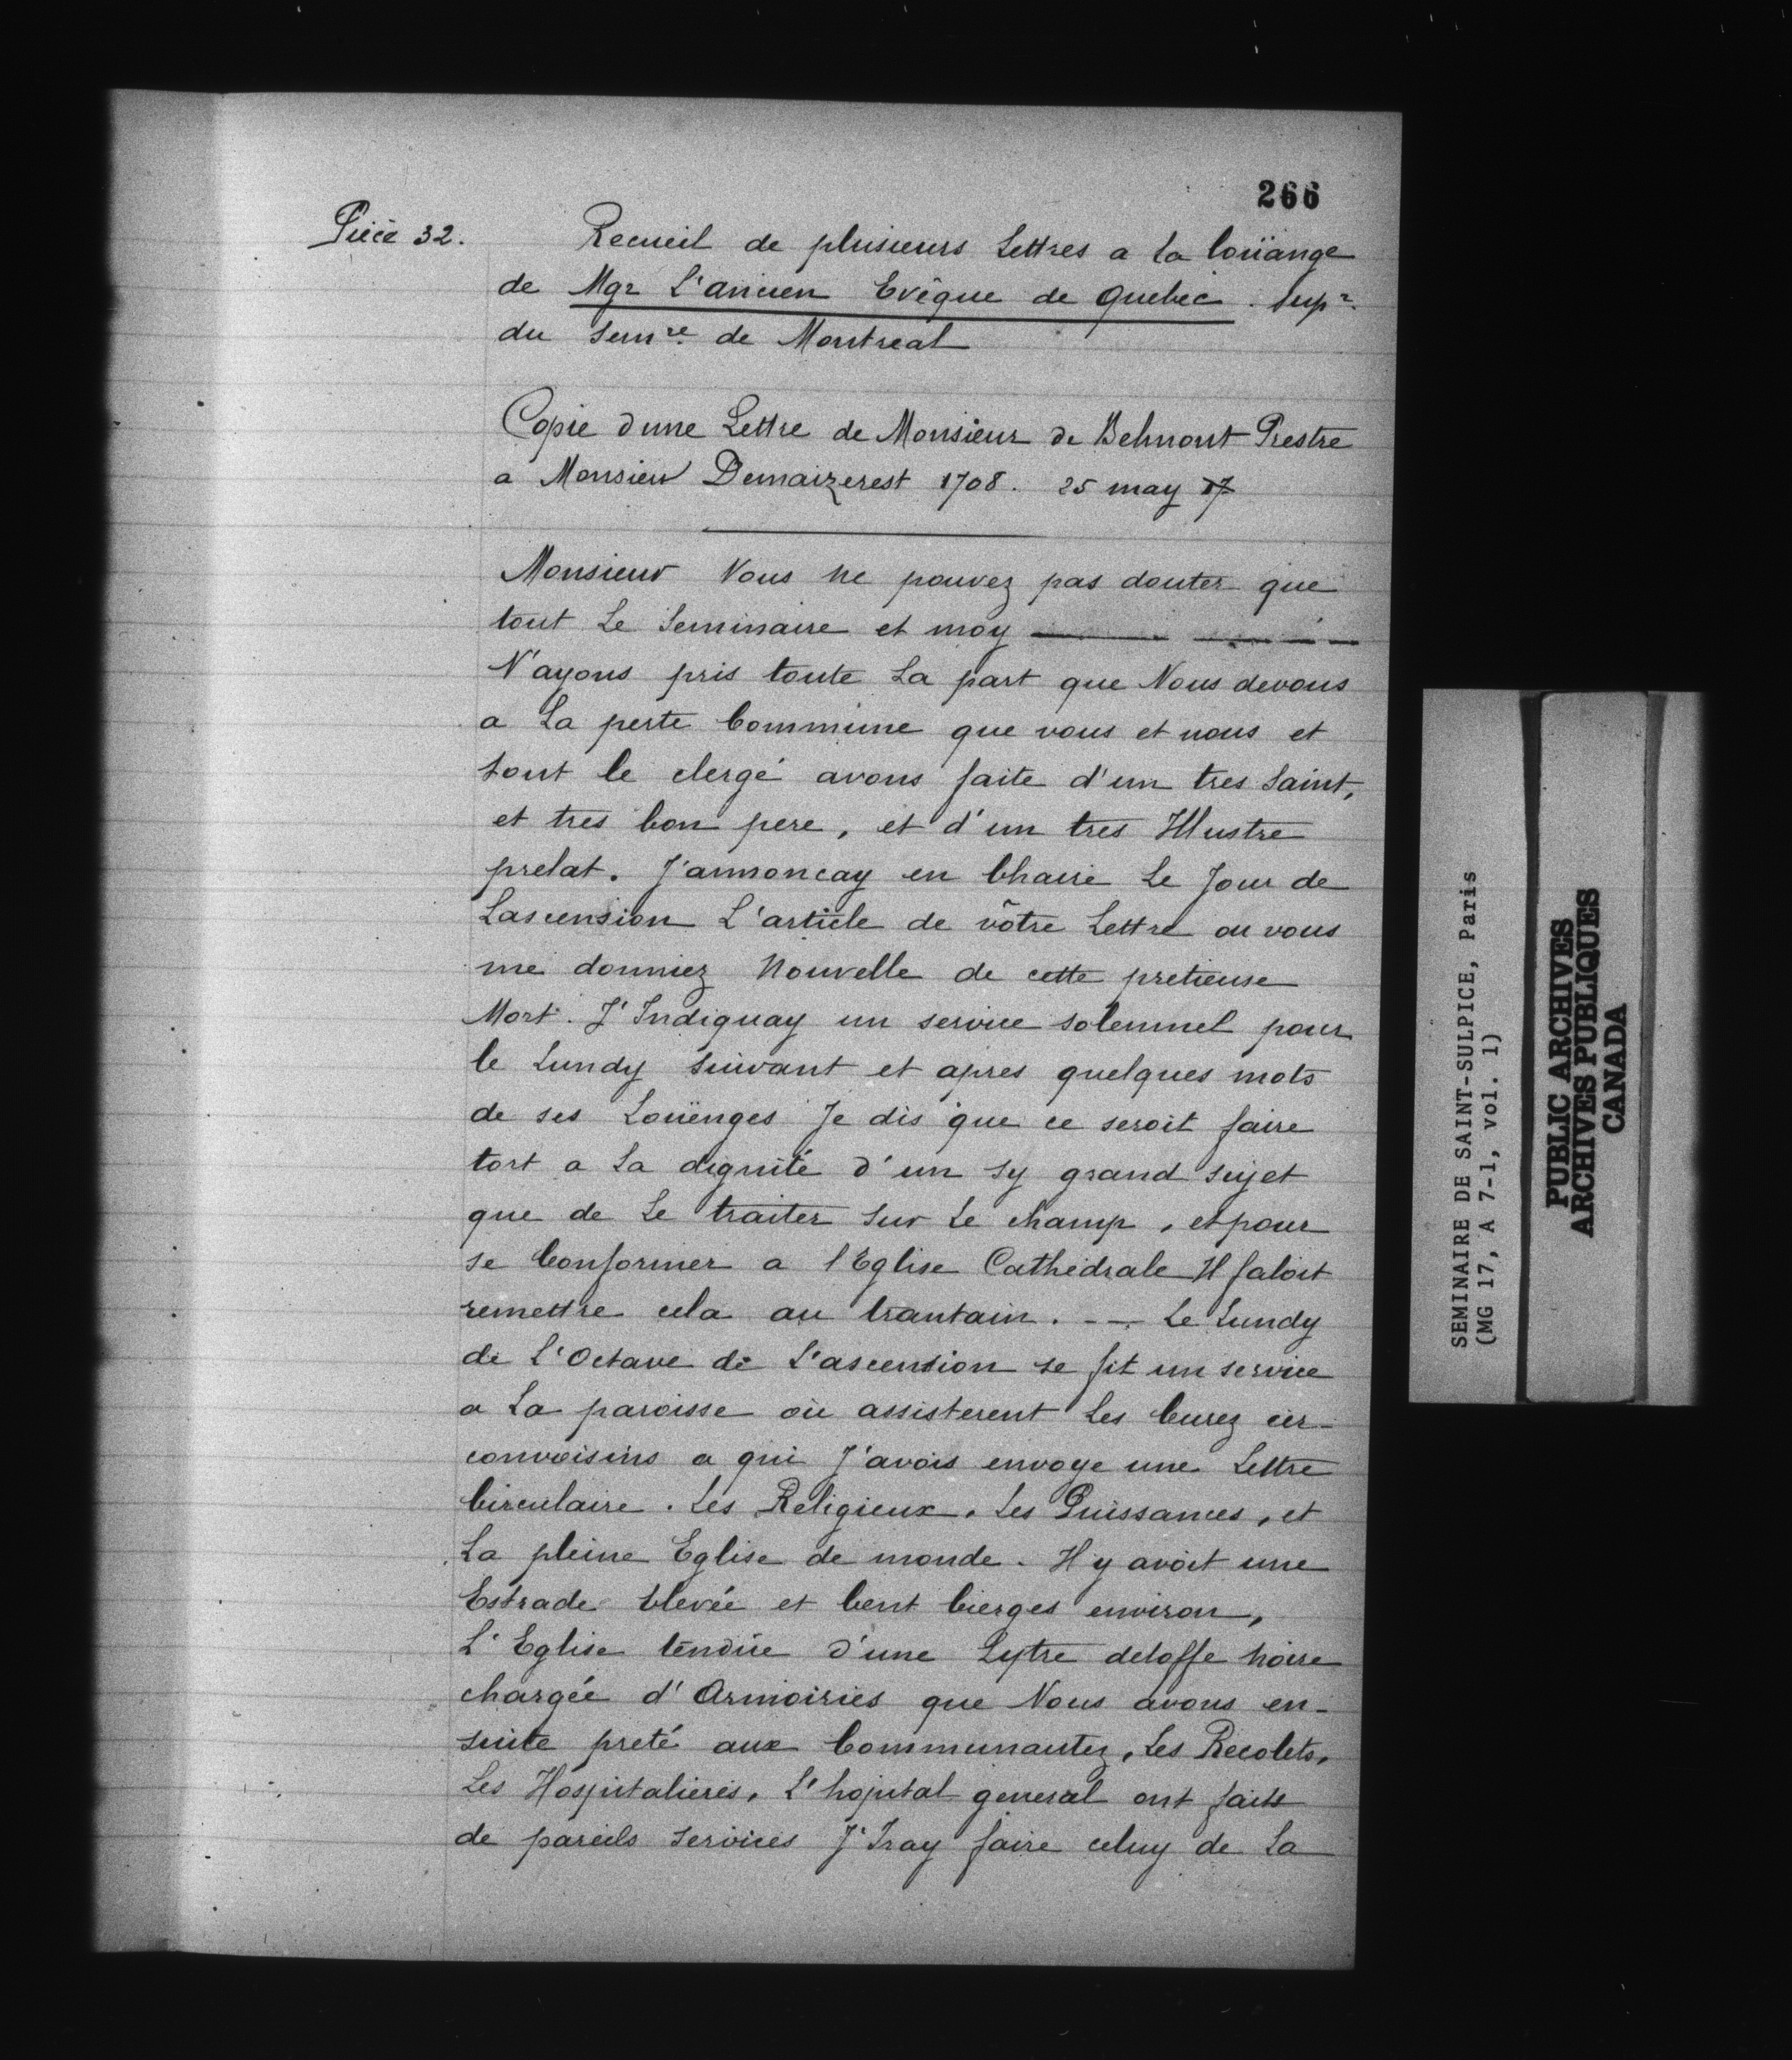 266
Pièce 32.
Recueil de plusieurs Lettres a la loüange
de Mgr L'ancien Evêque de Quebec. Supr.
du Semre. de Montreal
Copie dune Lettre de Monsieur de Belmont Prestre
a Monsieur Demaizerest 1708. 25 may 17
Monsieur Vous ne pouvez pas douter que
tout Le Seminaire et moy
N'ayons pris toute La part que Nous devons
a La perte Commune que vous et nous et
tout le clergé avons faite d'un tres Saint,
et tres bon pere, et d'un tres Illustre
prelat. J'annoncay en Chaire Le Jour de
Lascension L'article de vôtre Lettre ou vous
me donniez Nouvelle de cette pretieuse
Mort. J'Indiquay un service solemnel pour
le Lundy Suivant et apres quelques mots
de ses Loüenges Je dis que ce seroit faire
tort a La dignité d'un Sy grand Sujet
que de Le traiter Sur Le champ, et pour
se Conformer a l'Eglise Cathedrale Il faloit
remettre cela au trantain. -- Le Lundy
de L'Octave de L'ascension se fit un service
a La paroisse où assisterent Les Curez cir-
convoisins a qui J'avois envoye une Lettre
Circulaire. Les Religieux, Les Puissances, et
La pleine Eglise de monde. Il y avoit une
Estrade Elevée et Cent Cierges environ,
L'Eglise tendüe d'une Lytre detoffe noire
chargée d'Armoiries que Nous avons en-
suite preté aux Communautez, Les Recolets,
Les Hospitalieres, L'hopital general ont faits
de pareils Services J'Iray faire celuy de La
SEMINAIRE DE SAINT-SULPICE, Paris
(MG 17, A 7-1, vol. 1)
PUBLIC ARCHIVES
ARCHIVES PUBLIQUES
CANADA